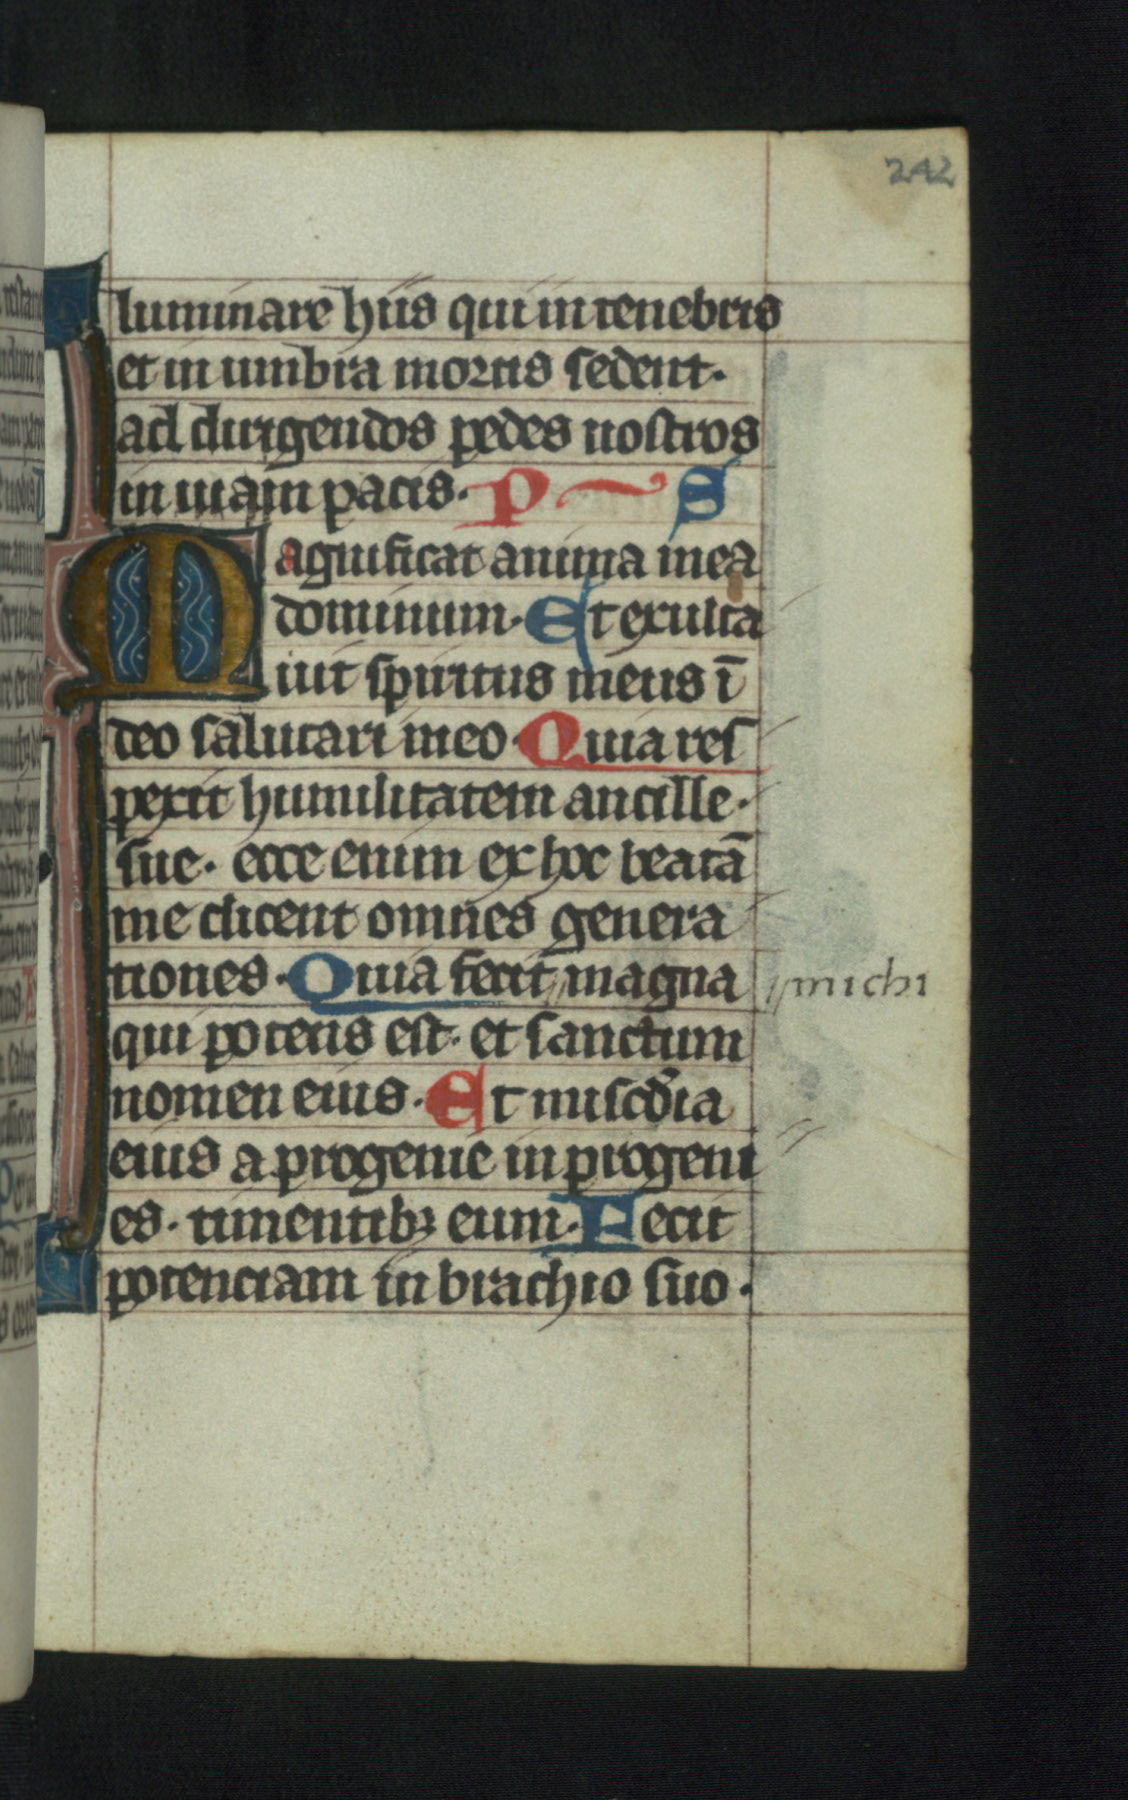 242
luminare hiis qui in tenebris
et in umbra mortis sedent·
ad dirigendos pedes nostros
in uiam pacis· P S
Magnificat anima mea
dominum· Et exulta
iut spiritus meus ī
deo salutari meo· Quia res
pexit humilitatem ancille·
sue· ecce enim ex hoc beatā
me dicent omnes genera
tiones· Quia fecit // magna // michi
qui potens est· et sanctum
nomen eius· Et miscd̄ia
eius a progenie in progeni
es· timentibꝫ eum· Fecit
potenciam in brachio suo·